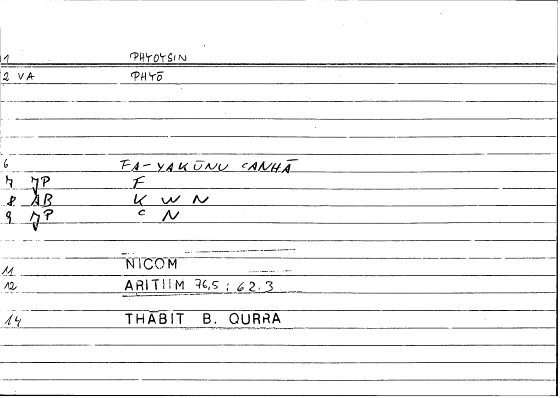 1 PHYOYSIN
2 VA PHYŌ
6 FA-YAKŪNU CANHĀ
7 JP F
8 AB K W N
9 JP C N
11 NICOM
12 ARITIIM 76,5 : 62.3
14 THĀBIT B. QURRA